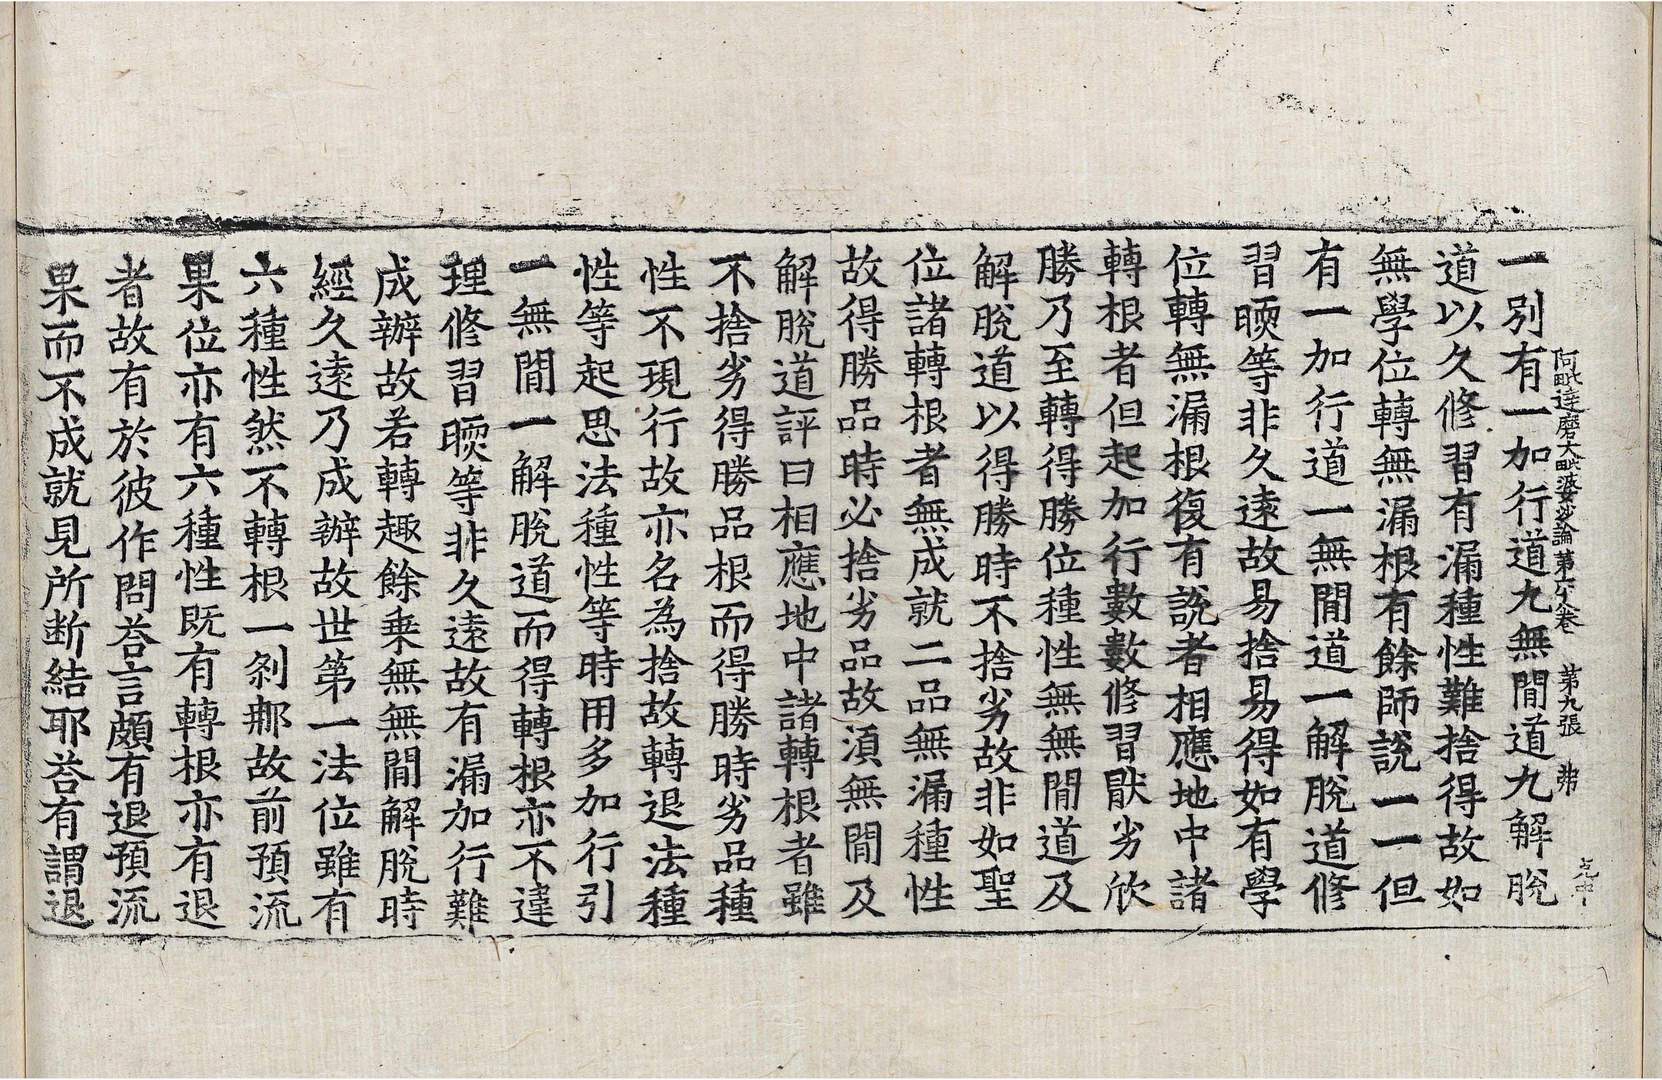 阿毗達磨大毗婆沙論第六十八卷 第九張 弗
一別有一加行道九無閒道九解脫
道以久修習有漏種性難捨得故如
無學位轉無漏根有餘師說一一但
有一加行道一無閒道一解脫道修
習㬉等非久遠故易捨易得如有學
位轉無漏根復有說者相應地中諸
轉根者但起加行數數修習猒劣欣
勝乃至轉得勝位種性無無閒道及
解脫道以得勝時不捨劣故非如聖
位諸轉根者無成就二品無漏種性
故得勝品時必捨劣品故須無閒及
解脫道評曰相應地中諸轉根者雖
不捨劣得勝品根而得勝時劣品種
性不現行故亦名為捨故轉退法種
性等起思法種性等時用多加行引
一無閒一解脫道而得轉根亦不違
理修習㬉等非久遠故有漏加行難
成辦故若轉趣餘乗無無閒解脫時
經久遠乃成辦故世第一法位雖有
六種性然不轉根一剎那故前預流
果位亦有六種性既有轉根亦有退
者故有於彼作問荅言頗有退預流
果而不成就見所断結耶荅有謂退